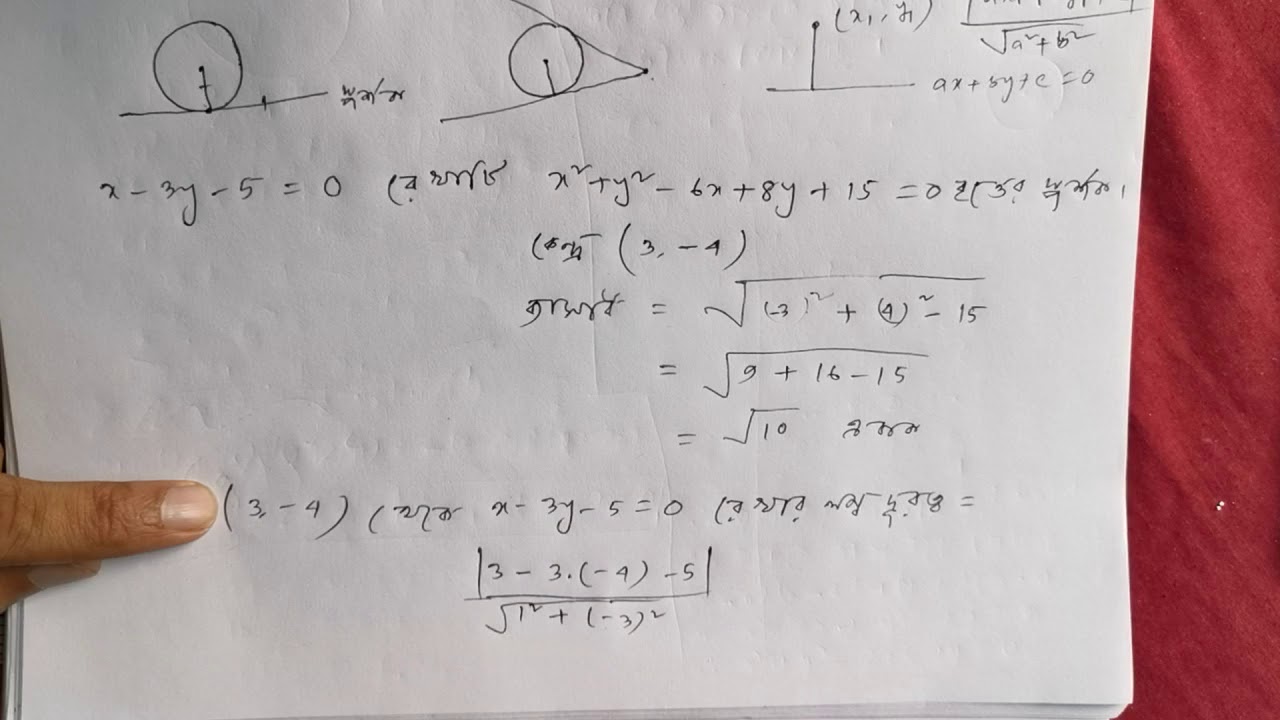 (x₁, y₁)
√a²+b²
ax+by+c=0
স্পর্শক
x - 3y - 5 = 0 রেখাটি x²+y² - 6x + 8y + 15 = 0 বৃত্তের স্পর্শক।
কেন্দ্র (3, -4)
ব্যাসার্ধ = √(-3)² + (4)² - 15
= √9 + 16 - 15
= √10 একক
(3, -4) থেকে x - 3y - 5 = 0 রেখার লম্ব দূরত্ব =
|3 - 3.(-4) - 5|
√1² + (-3)²